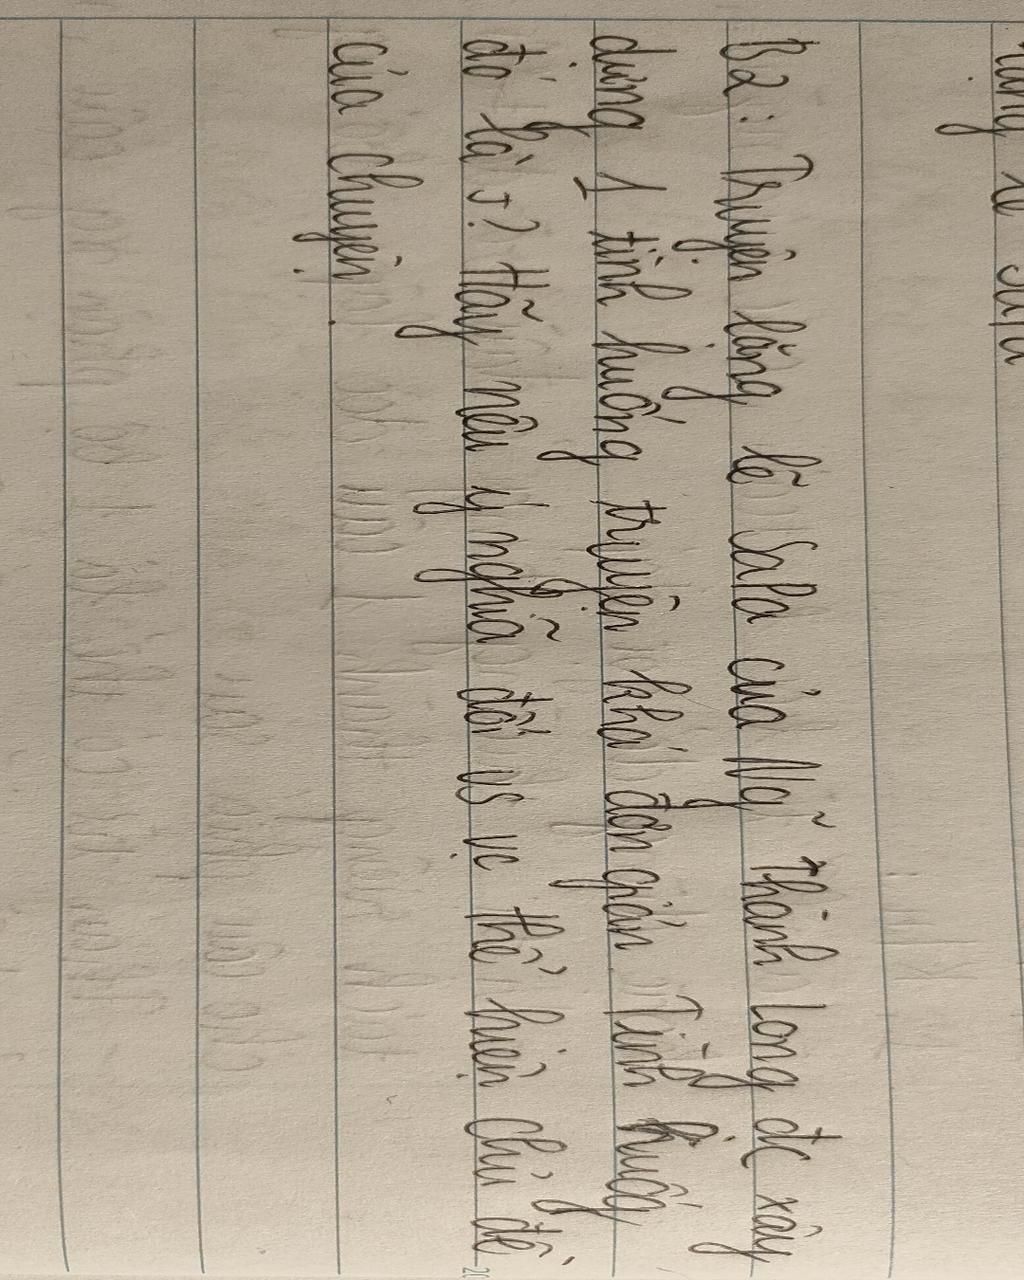 B2: Truyện lặng lẽ Sa Pa của Ng~ Thành Long đc xây
dựng 1 tình huống truyện khá đơn giản Tình huống
đó là j? Hãy nêu ý nghĩa đối vs vc thể hiện chủ đề
của chuyện.